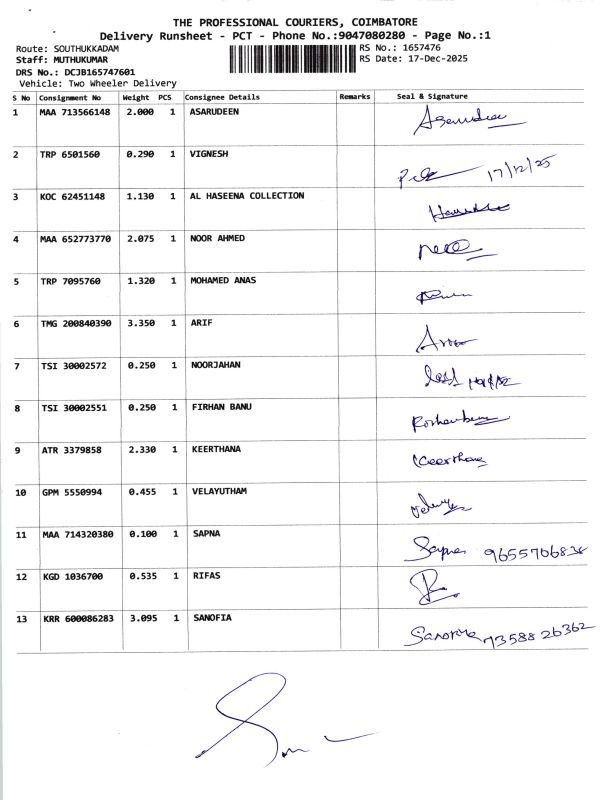 THE PROFESSIONAL COURIERS, COIMBATORE
Delivery Runsheet - PCT - Phone No.:9047080280 - Page No.:1
Route: SOUTHUKKADAM RS No.: 1657476
Staff: MUTHUKUMAR RS Date: 17-Dec-2025
DRS No.: DCJB165747601
Vehicle: Two Wheeler Delivery
S No Consignment No Weight PCS Consignee Details Remarks Seal & Signature
1 MAA 713566148 2.000 1 ASARUDEEN Asarudeen
2 TRP 6501560 0.290 1 VIGNESH 17/12/25
3 KOC 62451148 1.130 1 AL HASEENA COLLECTION
4 MAA 652773770 2.075 1 NOOR AHMED
5 TRP 7095760 1.320 1 MOHAMED ANAS
6 TMG 200840390 3.350 1 ARIF
7 TSI 30002572 0.250 1 NOORJAHAN
8 TSI 30002551 0.250 1 FIRHAN BANU
9 ATR 3379858 2.330 1 KEERTHANA Keerthana
10 GPM 5550994 0.455 1 VELAYUTHAM
11 MAA 714320380 0.100 1 SAPNA Sapna 9655706838
12 KGD 1036700 0.535 1 RIFAS
13 KRR 600086283 3.095 1 SANOFIA 7358826362